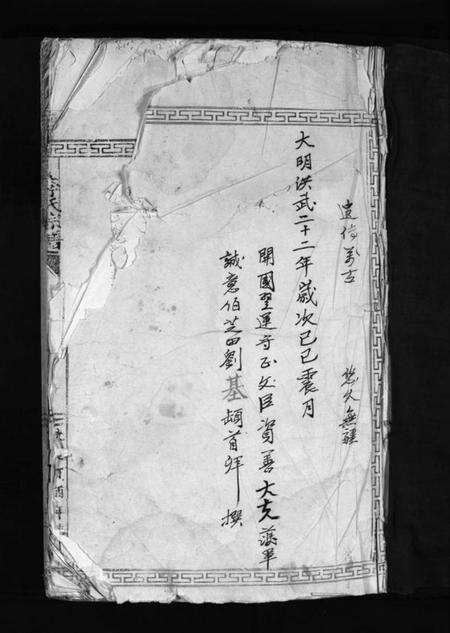 遺傳萬古 悠久無疆
大明洪武二十二年歲次己巳震月
開國翌運守正文臣資善大夫護軍
誠意伯芝田劉基頓首拜撰
氏宗譜